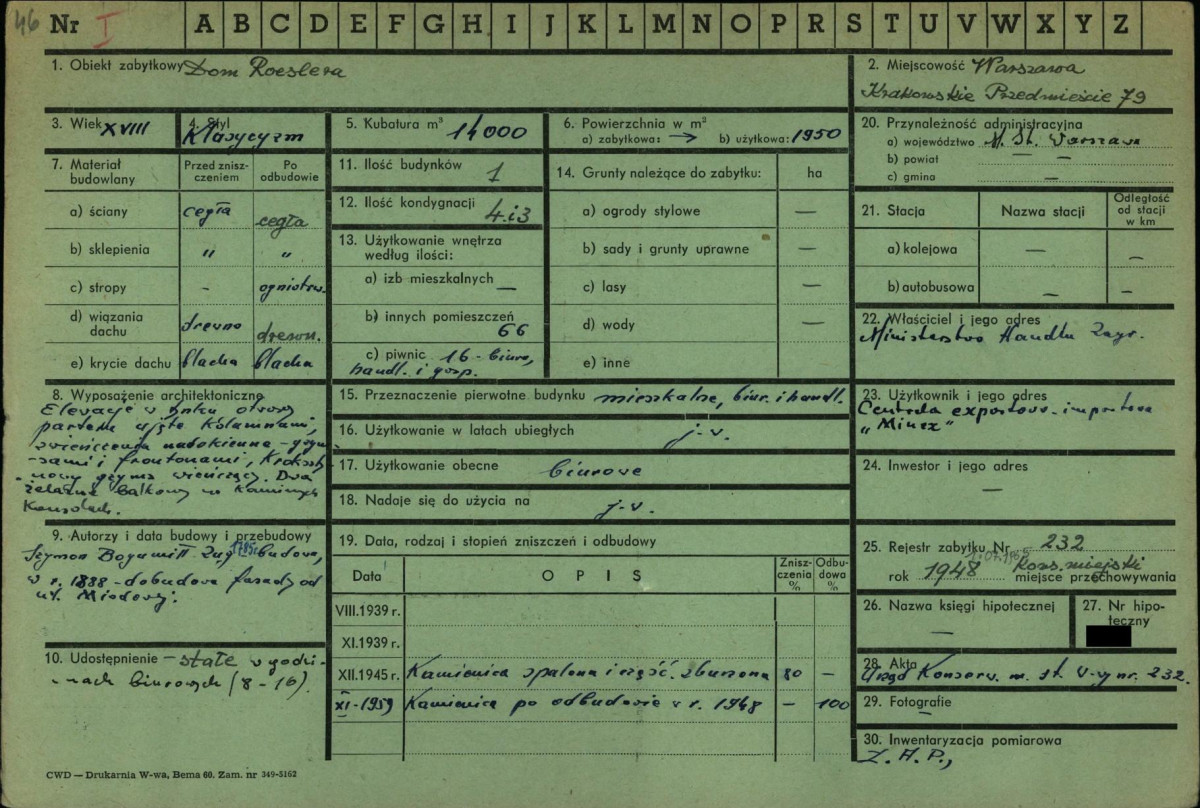 46
Nr I A B C D E F G H I J K L M N O P R S T U V W X Y Z
1. Obiekt zabytkowy Dom Roeslera
2. Miejscowość Warszawa
Krakowskie Przedmieście 79
3. Wiek XVIII
4. Styl
Klasycyzm
5. Kubatura m³ 14000
6. Powierzchnia w m²
a) zabytkowa: → b) użytkowa: 1950
20. Przynależność administracyjna
a) województwo M. St. Warszawa
b) powiat — —
c) gmina —
7. Materiał budowlany
Przed zniszczeniem
Po odbudowie
a) ściany cegła cegła
b) sklepienia " "
c) stropy - ogniotrw.
d) wiązania dachu drewno drewn.
e) krycie dachu blacha blacha
11. Ilość budynków 1
12. Ilość kondygnacji 4 i 3
13. Użytkowanie wnętrza
według ilości:
a) izb mieszkalnych —
b) innych pomieszczeń
66
c) piwnic 16 - biuro,
handl. i gosp.
14. Grunty należące do zabytku: ha
a) ogrody stylowe —
b) sady i grunty uprawne —
c) lasy —
d) wody —
e) inne
21. Stacja Nazwa stacji Odległość od stacji w km
a) kolejowa — —
b) autobusowa — —
22. Właściciel i jego adres
Ministerstwo Handlu Zagr.
8. Wyposażenie architektoniczne
Elewacje w bniku otwory
parteru ujęte kolumnami,
zwieńczenia nadokienne - gzym-
-sami i frontonami, kroksty-
-nowy gzyms wieńczący. Dwa
żelazne balkony na kamiennych
konsolach.
15. Przeznaczenie pierwotne budynku mieszkalne, biur. i handl.
16. Użytkowanie w latach ubiegłych j.w.
17. Użytkowanie obecne biurowe
18. Nadaje się do użycia na j.w.
23. Użytkownik i jego adres
Centrala exportowo-importowa
"Minex"
24. Inwestor i jego adres
—
9. Autorzy i data budowy i przebudowy
Szymon Bogumił Zug 1785 r. budowa,
w r. 1888 - dobudowa fasady od
ul. Miodowej.
10. Udostępnienie - stałe w godzi-
-nach biurowych (8-16).
19. Data, rodzaj i stopień zniszczeń i odbudowy
Data OPIS Zniszczenia % Odbudowa %
VIII.1939 r.
XI.1939 r.
XII.1945 r. Kamienica spalona i część. zburzona 80 —
XI-1959 Kamienica po odbudowie w r. 1948 — 100
25. Rejestr zabytku Nr 232
1.07.1965
rok 1948 miejsce przechowywania
Kons. miejski
26. Nazwa księgi hipotecznej
—
27. Nr hipoteczny
28. Akta
Urząd Konserw. m. st. W-wy nr. 232.
29. Fotografie
—
30. Inwentaryzacja pomiarowa
Z.A.P.,
CWD — Drukarnia W-wa, Bema 60. Zam. nr 349-5162